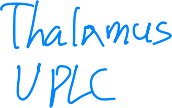 Thalamus
UPLC